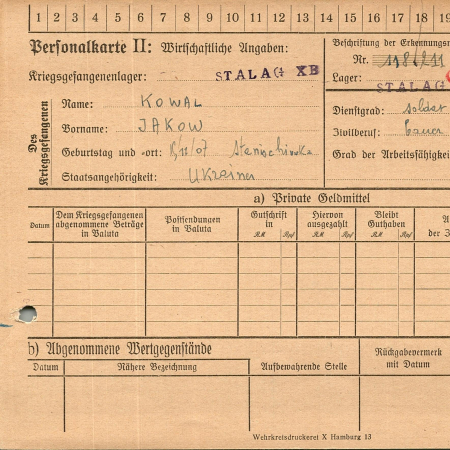 1 2 3 4 5 6 7 8 9 10 11 12 13 14 15 16 17 18 19
Personalkarte II: Wirtschaftliche Angaben:
Beschriftung der Erkennungsm
Nr.
Kriegsgefangenenlager: STALAG XB
Lager: STALAG
Des Kriegsgefangenen
Name: KOWAL
Dienstgrad: Soldat
Vorname: JAKOW
Zivilberuf:
Geburtstag und -ort:
Grad der Arbeitsfähigkeit
Staatsangehörigkeit: Ukrainer
a) Private Geldmittel
Datum
Dem Kriegsgefangenen abgenommene Beträge in Valuta
Postsendungen in Valuta
Gutschrift in
RM Rpf
Hiervon ausgezahlt
RM Rpf
Bleibt Guthaben
RM Rpf
der
b) Abgenommene Wertgegenstände
Datum
Nähere Bezeichnung
Aufbewahrende Stelle
Rückgabevermerk mit Datum
Wehrkreisdruckerei X Hamburg 13